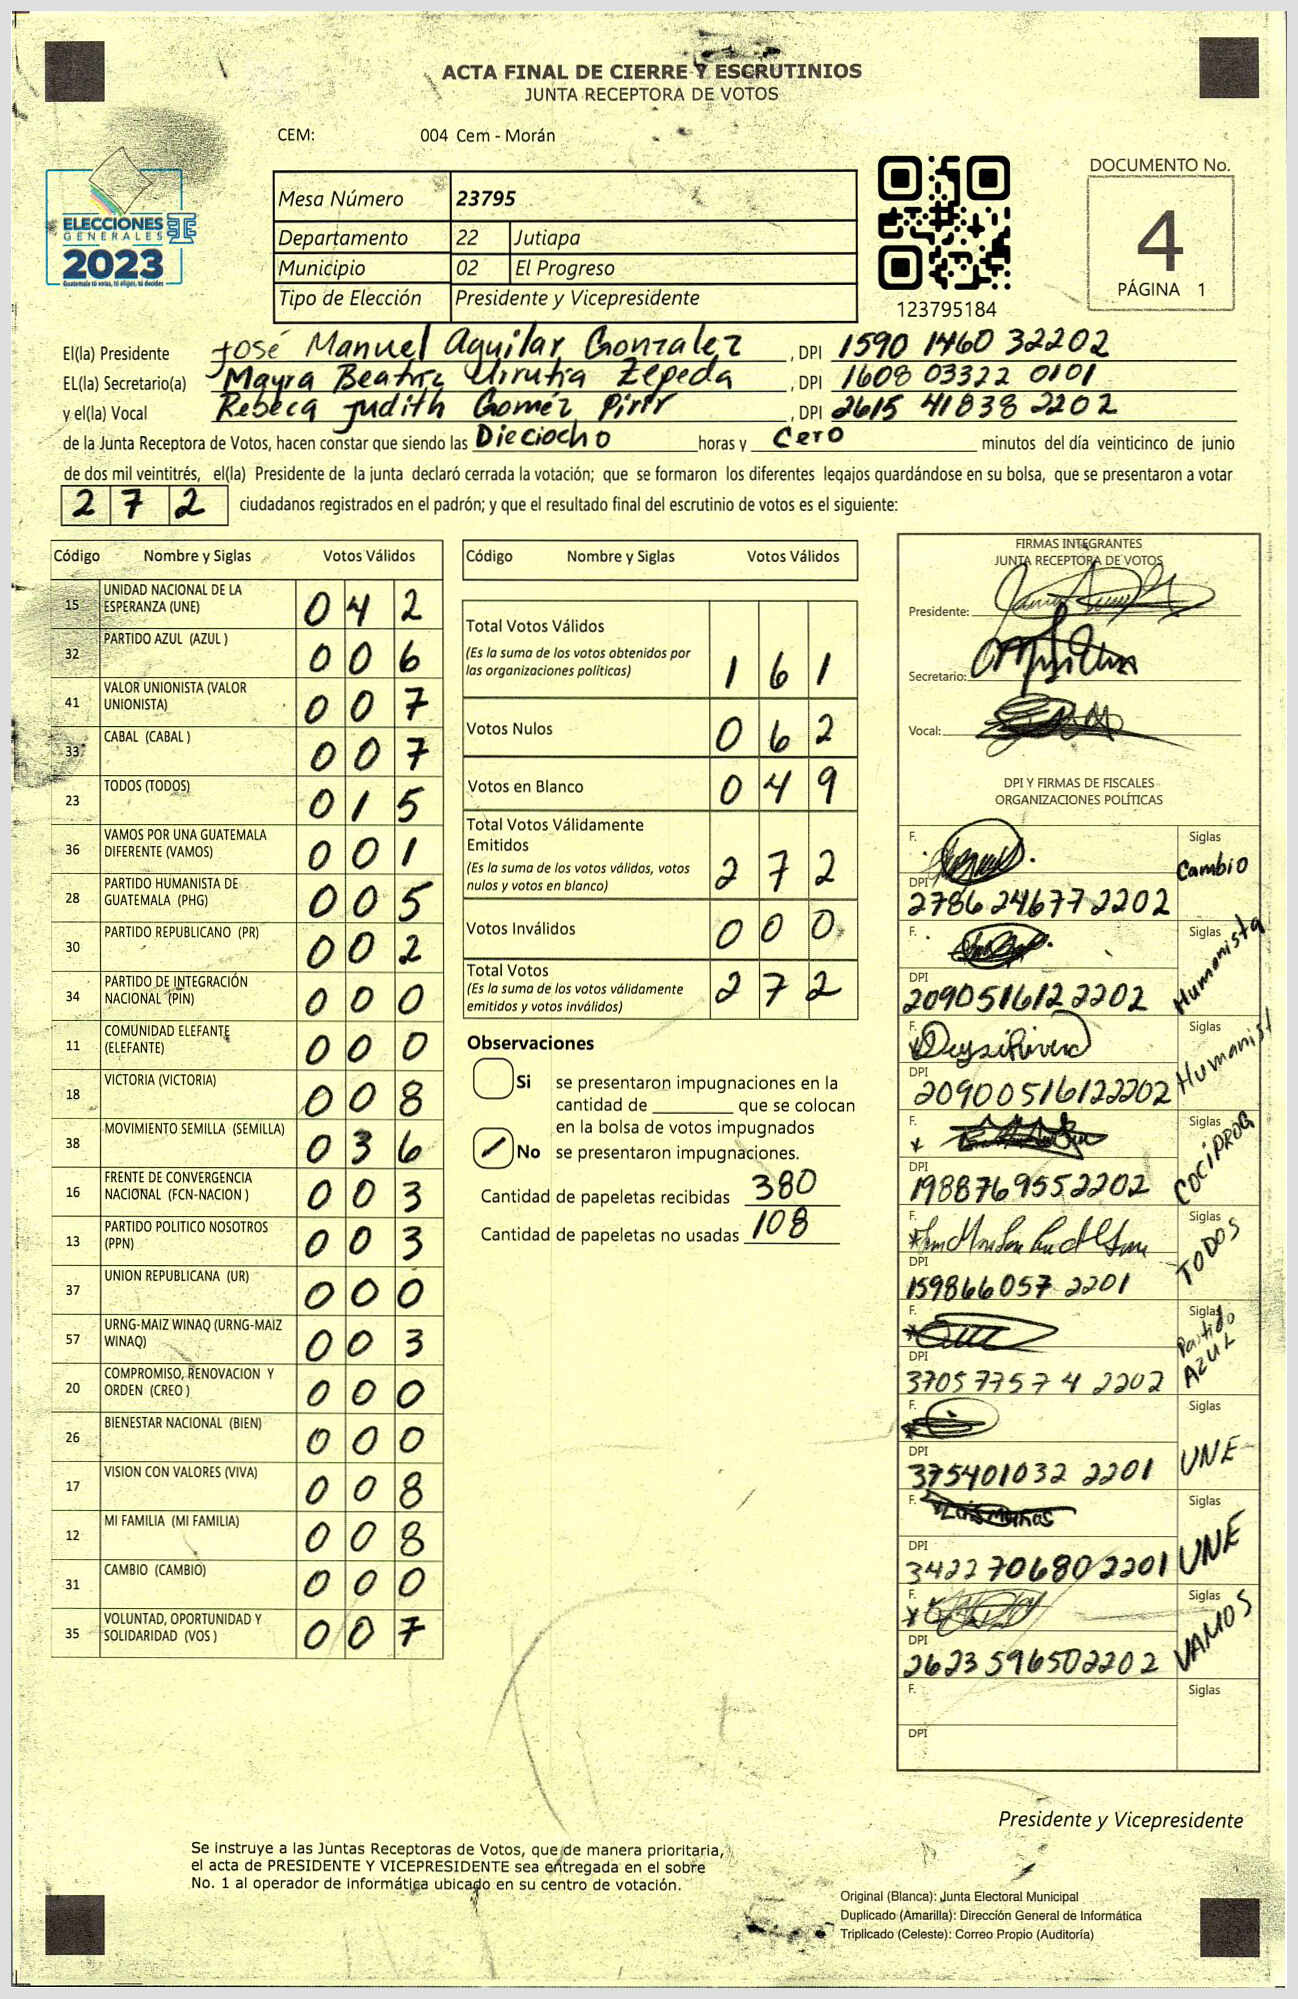 ACTA FINAL DE CIERRE Y ESCRUTINIOS
JUNTA RECEPTORA DE VOTOS
CEM: 004 Cem - Morán
ELECCIONES
GENERALES
2023
Guatemala tú votas, tú eliges, tú decides
Mesa Número 23795
Departamento 22 Jutiapa
Municipio 02 El Progreso
Tipo de Elección Presidente y Vicepresidente
123795184
DOCUMENTO No.
4
PÁGINA 1
El(la) Presidente José Manuel Aguilar Gonzalez , DPI 1590 1460 32202
EL(la) Secretario(a) Mayra Beatriz Urrutia Zepeda , DPI 1608 03322 0101
y el(la) Vocal Rebeca Judith Goméz Pirir , DPI 2615 41838 2202
de la Junta Receptora de Votos, hacen constar que siendo las Dieciocho horas y Cero minutos del día veinticinco de junio
de dos mil veintitrés, el(la) Presidente de la junta declaró cerrada la votación; que se formaron los diferentes legajos guardándose en su bolsa, que se presentaron a votar
2 7 2 ciudadanos registrados en el padrón; y que el resultado final del escrutinio de votos es el siguiente:
Código Nombre y Siglas Votos Válidos
15 UNIDAD NACIONAL DE LA ESPERANZA (UNE) 0 4 2
32 PARTIDO AZUL (AZUL ) 0 0 6
41 VALOR UNIONISTA (VALOR UNIONISTA) 0 0 7
33 CABAL (CABAL ) 0 0 7
23 TODOS (TODOS) 0 1 5
36 VAMOS POR UNA GUATEMALA DIFERENTE (VAMOS) 0 0 1
28 PARTIDO HUMANISTA DE GUATEMALA (PHG) 0 0 5
30 PARTIDO REPUBLICANO (PR) 0 0 2
34 PARTIDO DE INTEGRACIÓN NACIONAL (PIN) 0 0 0
11 COMUNIDAD ELEFANTE (ELEFANTE) 0 0 0
18 VICTORIA (VICTORIA) 0 0 8
38 MOVIMIENTO SEMILLA (SEMILLA) 0 3 6
16 FRENTE DE CONVERGENCIA NACIONAL (FCN-NACION ) 0 0 3
13 PARTIDO POLITICO NOSOTROS (PPN) 0 0 3
37 UNION REPUBLICANA (UR) 0 0 0
57 URNG-MAIZ WINAQ (URNG-MAIZ WINAQ) 0 0 3
20 COMPROMISO, RENOVACION Y ORDEN (CREO ) 0 0 0
26 BIENESTAR NACIONAL (BIEN) 0 0 0
17 VISION CON VALORES (VIVA) 0 0 8
12 MI FAMILIA (MI FAMILIA) 0 0 8
31 CAMBIO (CAMBIO) 0 0 0
35 VOLUNTAD, OPORTUNIDAD Y SOLIDARIDAD (VOS ) 0 0 7
Código Nombre y Siglas Votos Válidos
Total Votos Válidos
(Es la suma de los votos obtenidos por
las organizaciones políticas) 1 6 1
Votos Nulos 0 6 2
Votos en Blanco 0 4 9
Total Votos Válidamente
Emitidos
(Es la suma de los votos válidos, votos
nulos y votos en blanco) 2 7 2
Votos Inválidos 0 0 0
Total Votos
(Es la suma de los votos válidamente
emitidos y votos inválidos) 2 7 2
Observaciones
Si se presentaron impugnaciones en la
cantidad de ________ que se colocan
en la bolsa de votos impugnados
No se presentaron impugnaciones.
Cantidad de papeletas recibidas 380
Cantidad de papeletas no usadas 108
FIRMAS INTEGRANTES
JUNTA RECEPTORA DE VOTOS
Presidente:
Secretario:
Vocal:
DPI Y FIRMAS DE FISCALES
ORGANIZACIONES POLÍTICAS
F. Siglas Cambio
DPI 2786 24677 2202
F. Siglas Humanista
DPI 209051612 2202
F. Deysi Rivera Siglas Humanist
DPI 2090051612202
F. Siglas COCIPROG
DPI 1988769552202
F. Siglas TODOS
DPI 159866057 2201
F. Siglas Partido AZUL
DPI 3705 7757 4 2202
F. Siglas UNE
DPI 375401032 2201
F. Siglas UNE
DPI 3422 70680 2201
F. Siglas VAMOS
DPI 2623 59650 2202
F. Siglas
DPI
Presidente y Vicepresidente
Se instruye a las Juntas Receptoras de Votos, que de manera prioritaria,
el acta de PRESIDENTE Y VICEPRESIDENTE sea entregada en el sobre
No. 1 al operador de informática ubicado en su centro de votación.
Original (Blanca): Junta Electoral Municipal
Duplicado (Amarilla): Dirección General de Informática
Triplicado (Celeste): Correo Propio (Auditoría)